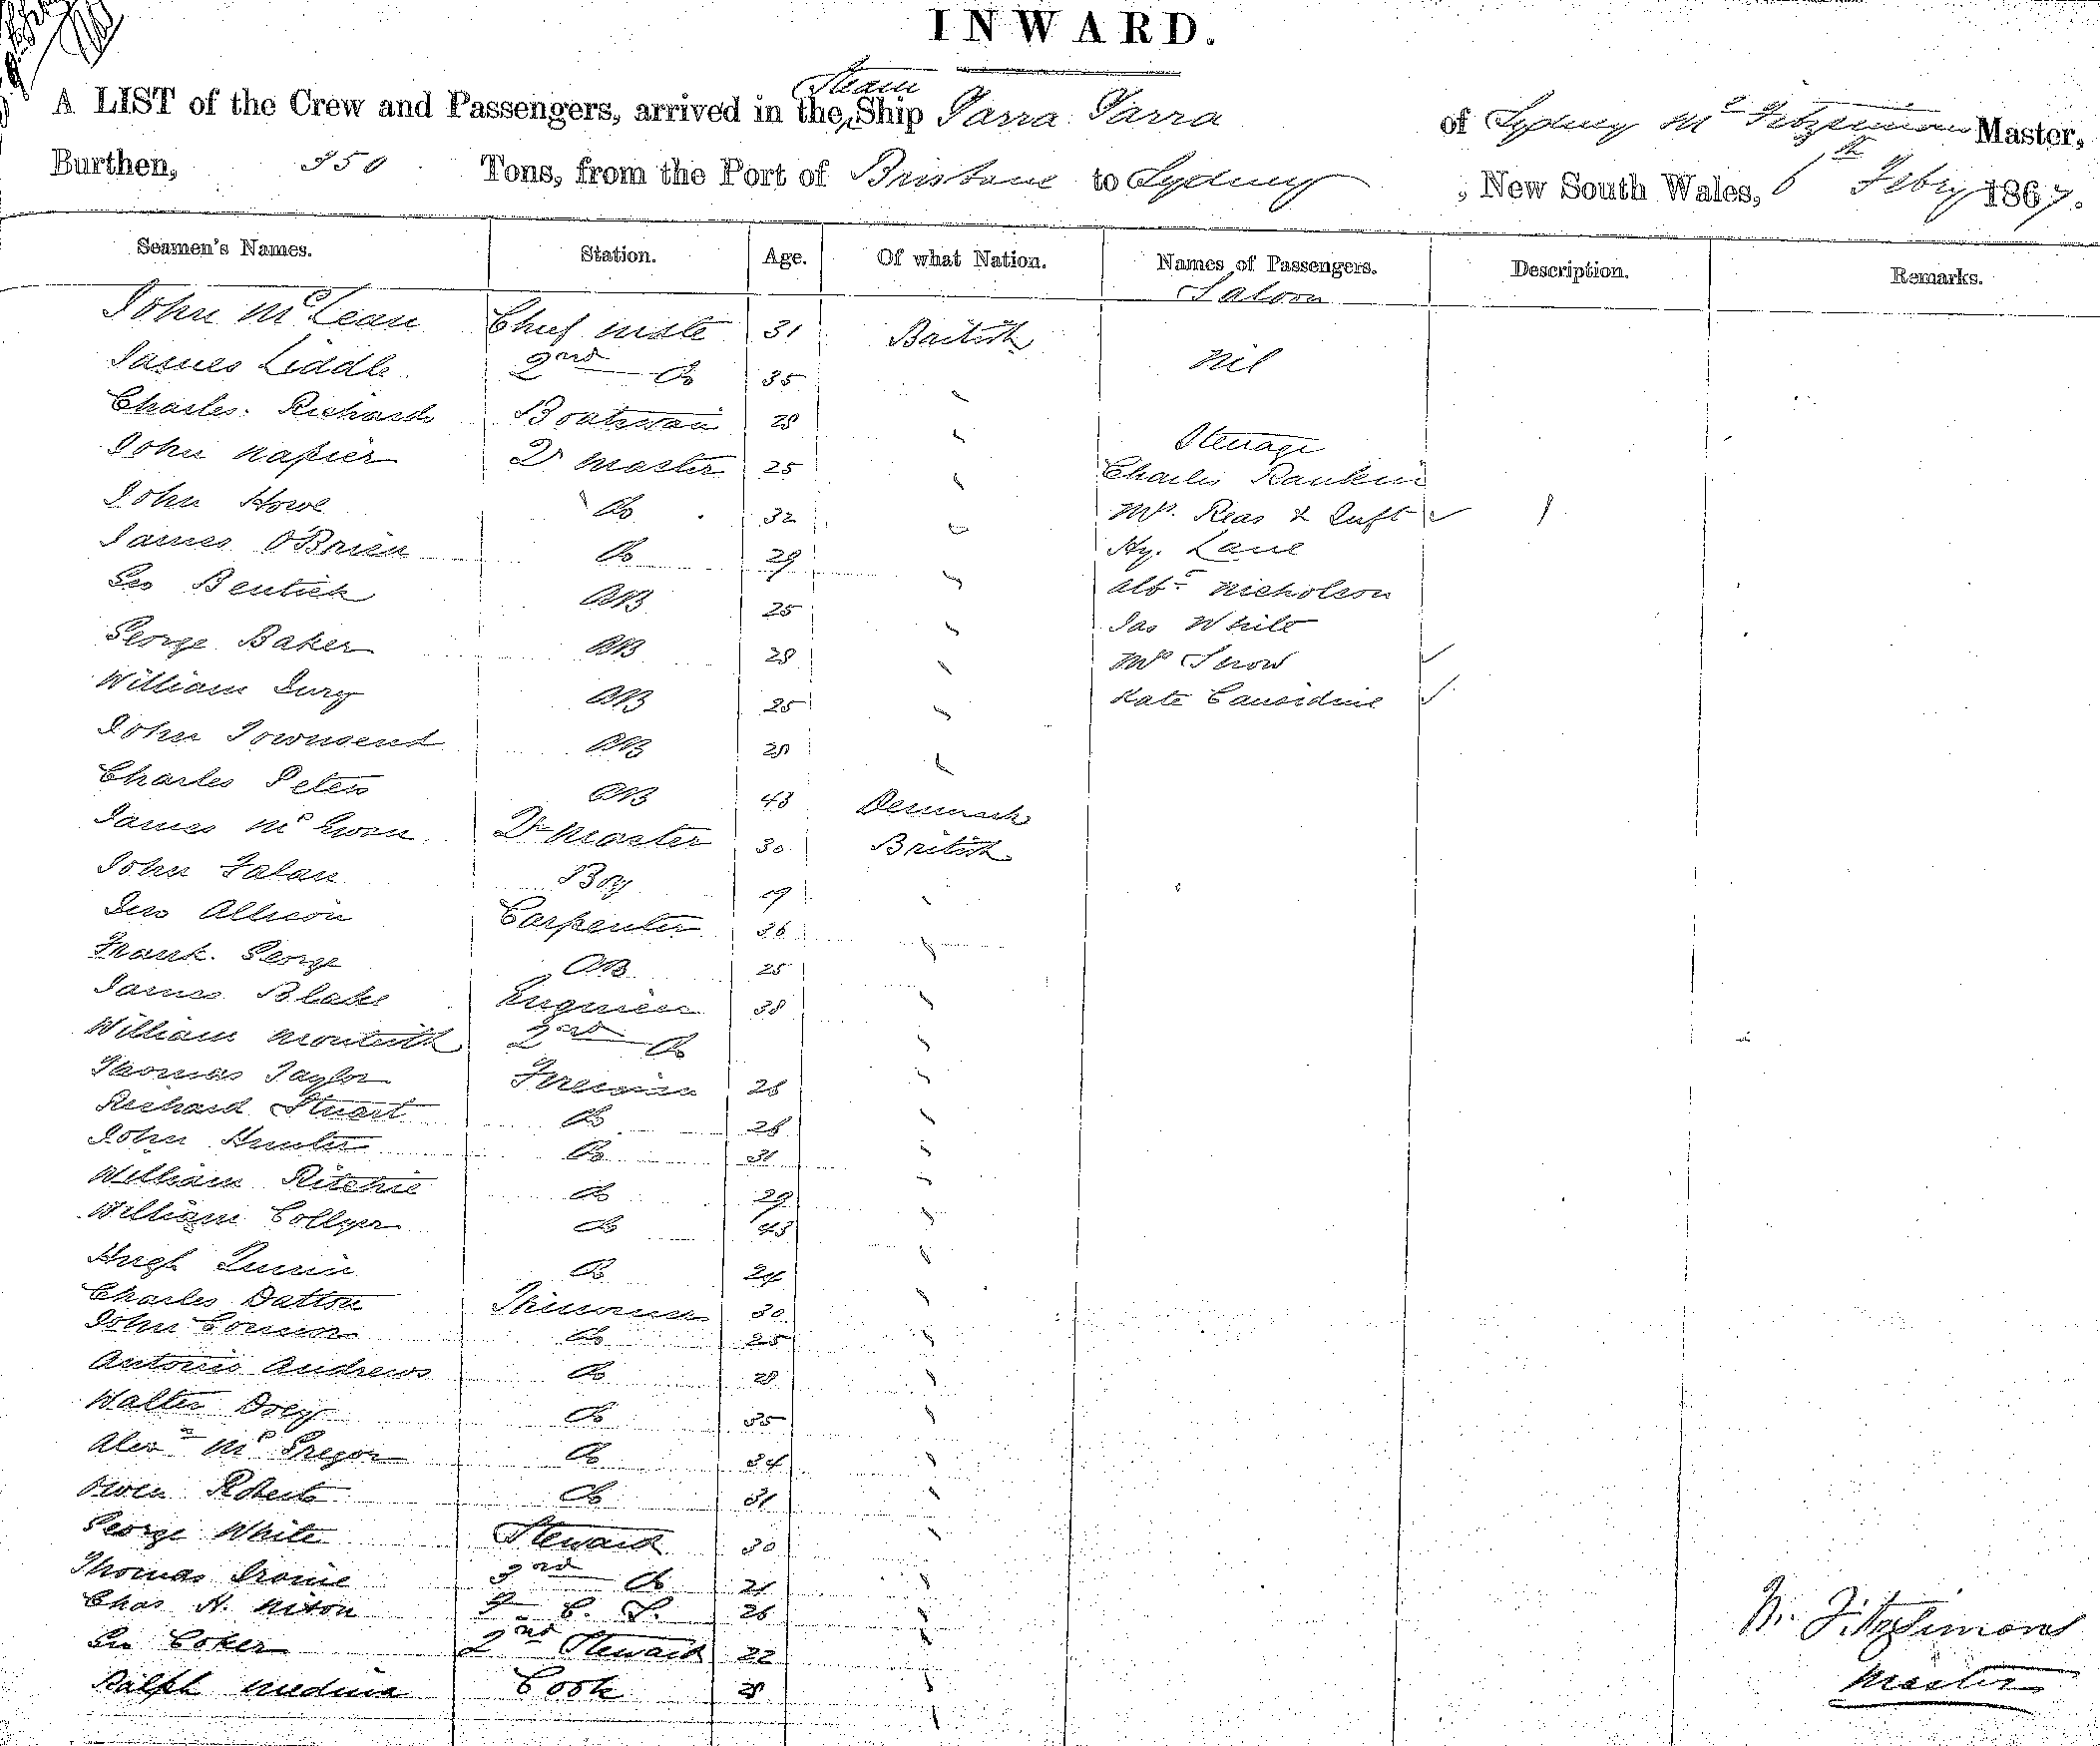 INWARD.
A LIST of the Crew and Passengers, arrived in the Steam Ship Yarra Yarra of Sydney Mc Fitzsimons Master,
Burthen, 350 Tons, from the Port of Brisbane to Sydney, New South Wales, 6th Febry 1867.
Seamen's Names. Station. Age. Of what Nation. Names of Passengers. Description. Remarks.
Saloon
John McLean Chief mate 31 British
James Liddle 2nd Do 35 nil
Charles Richards Boatswain 28
John Napier Qr Master 25 Steerage
Charles Rankin
John Howe Do 32 Mrs. Reas & Inft
James O'Brien Do 29 Hy. Lane
Geo Bentick AB 25 Albt Nicholson
Jas White
George Baker AB 28 Mrs Snow
William Jury AB 25 Kate Considine
John Townsend AB 28
Charles Peters AB 43 Denmark
James McEwen Qr Master 30 British
John Falan Boy 19
Jno Allison Carpenter 36
Frank George AB 25
James Blake Engineer 38
William Monteith 2nd Do
Thomas Taylor Fireman 26
Richard Stuart Do 26
John Hunter Do 31
William Ritchie Do 29
William Collyer Do 43
Hugh Quinn Do 24
Charles Dalton Trimmer 30
John Connor Do 25
Antonio Andrews Do 28
Walter Doey Do 35
Alexr McGregor Do 34
Owen Roberts Do 31
George White Steward 30
Thomas Do 21
Chas H. Nixon 26
Coker 2nd Steward 22
Ralph Medina Cook 28
Fitzsimons
Master